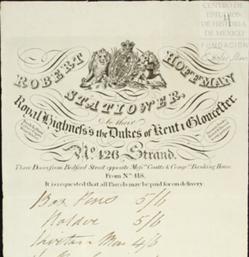 CENTRO DE
ESTUDIOS
DE HISTORIA
DE MEXICO
FUNDACIÓN
ROBERT HOFFMAN
STATIONER,
to their
Royal Highness's the Dukes of Kent & Gloucester.
No. 426 Strand.
Three Doors from Bedford Street opposite Messrs. Coutts & Compy. Banking House
From No. 418.
It is requested that all Parcels may be paid for on delivery.
Box Pens 5/6
5/6
4/6